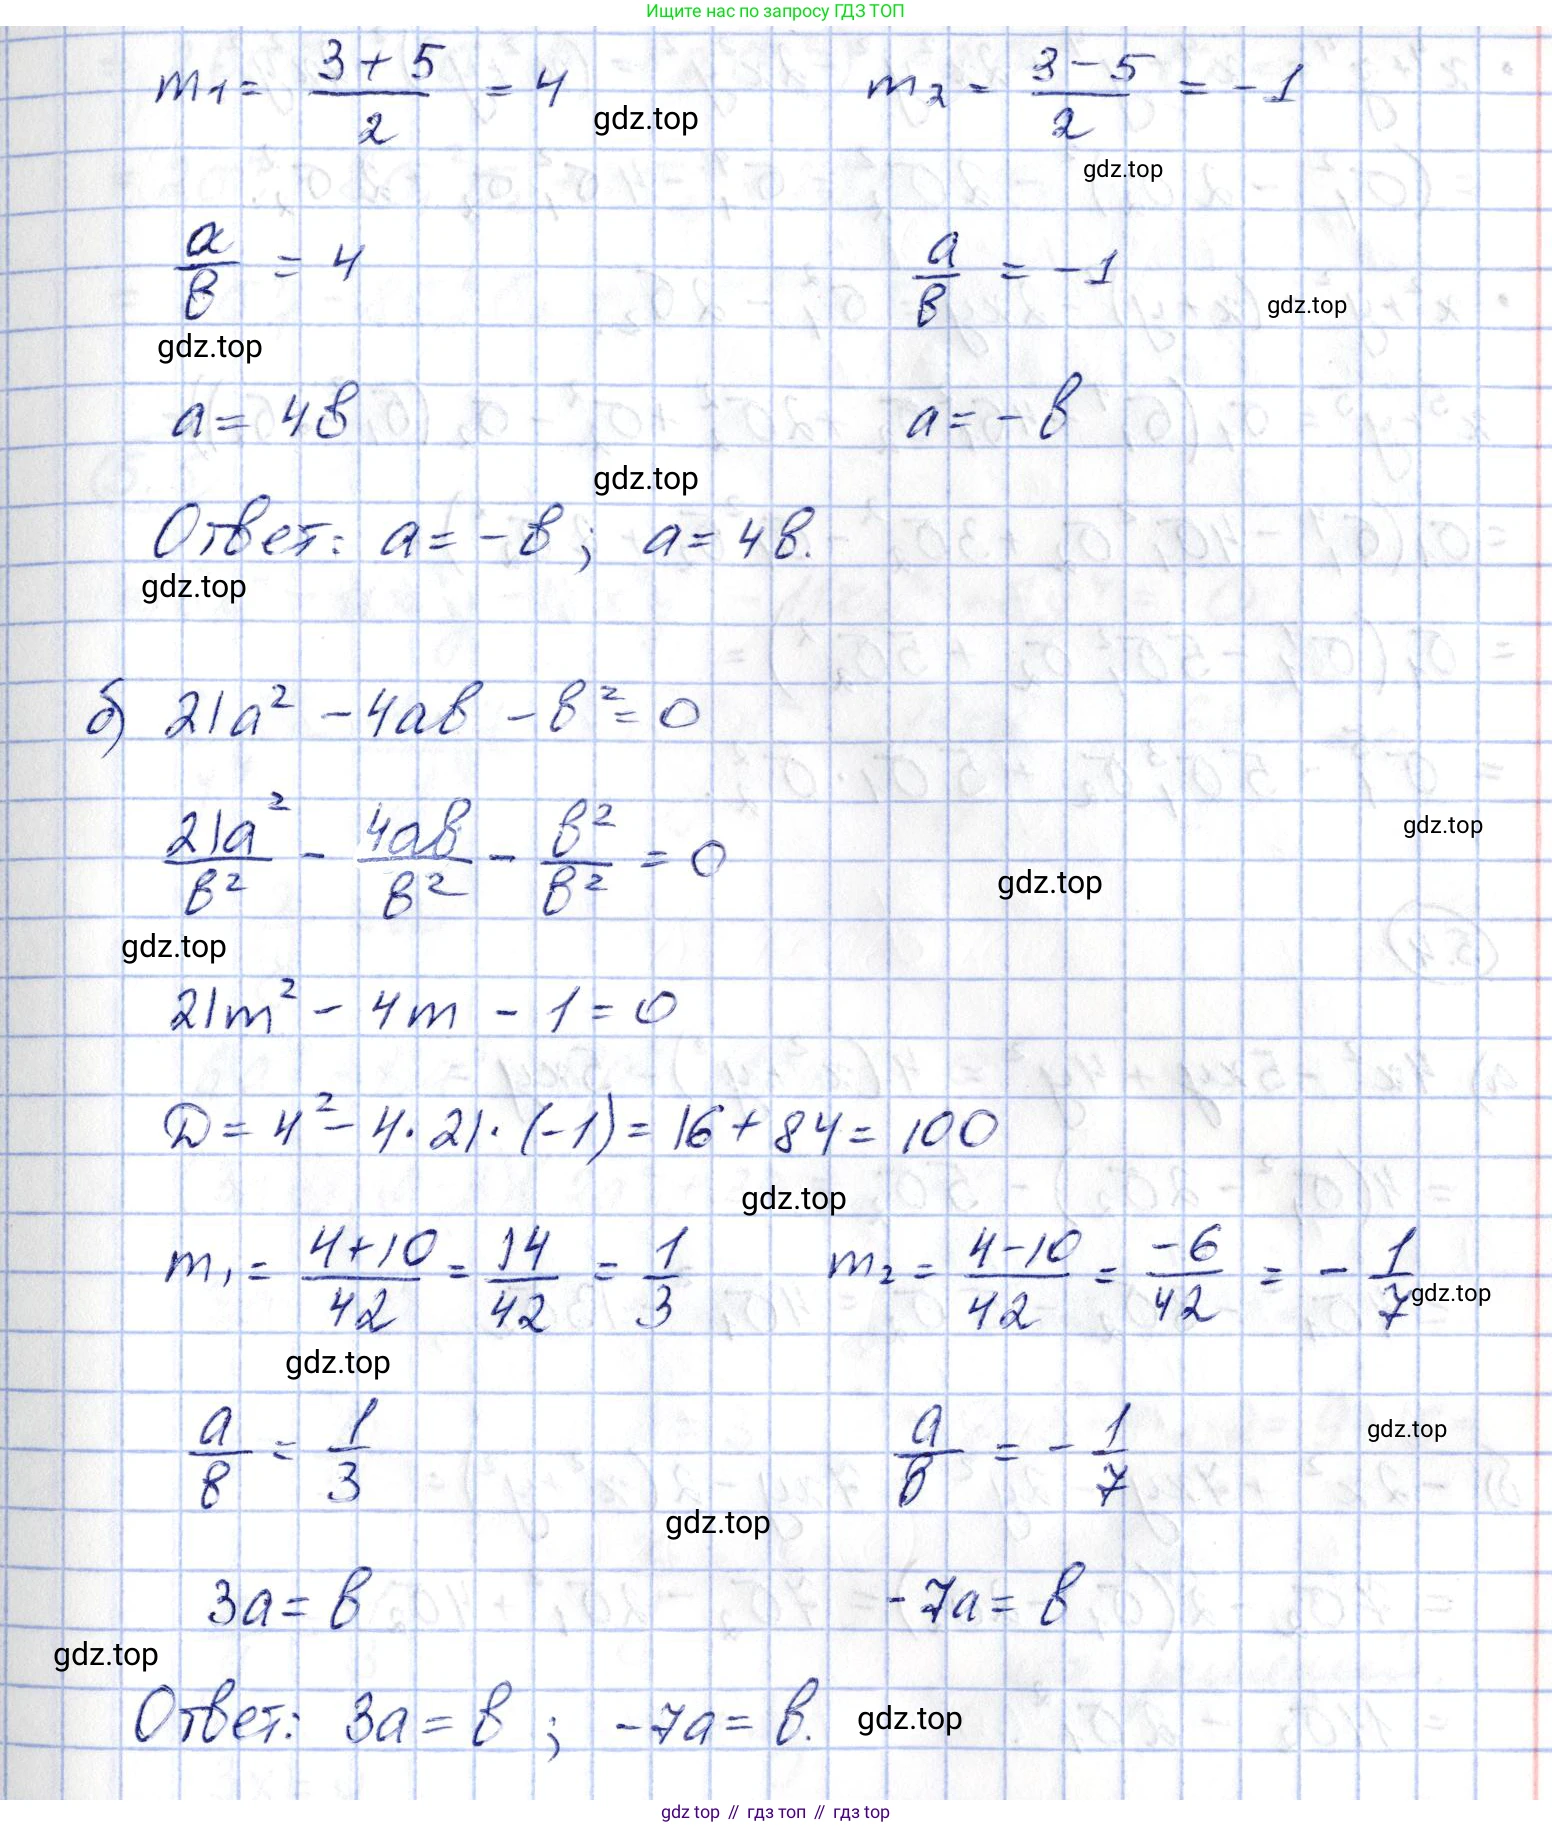 Ищите нас по запросу ГДЗ ТОП
m₁ = (3 + 5)/2 = 4    m₂ = (3 − 5)/2 = −1
gdz.top
gdz.top
a/в = 4    a/в = −1
gdz.top
gdz.top
a = 4в    a = −в
gdz.top
Ответ: a = −в; a = 4в.
gdz.top
б) 21a² − 4aв − в² = 0
21a²/в² − 4aв/в² − в²/в² = 0
gdz.top
gdz.top
gdz.top
21m² − 4m − 1 = 0
D = 4² − 4 · 21 · (−1) = 16 + 84 = 100
gdz.top
m₁ = (4+10)/42 = 14/42 = 1/3    m₂ = (4−10)/42 = −6/42 = −1/7
gdz.top
gdz.top
a/в = 1/3    a/в = −1/7
gdz.top
gdz.top
3a = в    −7a = в
gdz.top
Ответ: 3a = в; −7a = в.
gdz.top
gdz top // гдз топ // гдз top